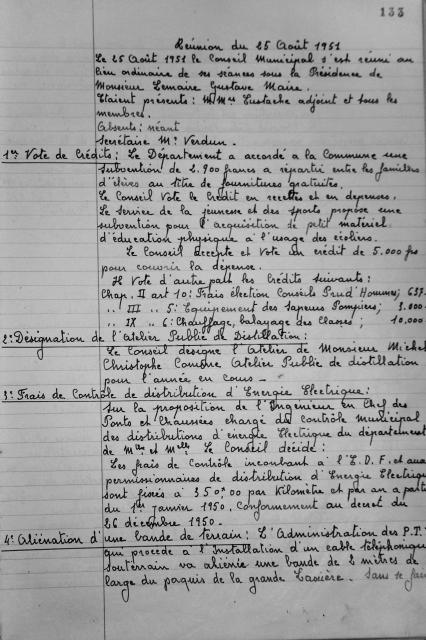 133
Réunion du 25 Août 1951
Le 25 Août 1951 le Conseil Municipal s'est réuni au
lieu ordinaire de ses séances sous la Présidence de
Monsieur Lemaire Gustave Maire.
Etaient présents : M. Mrs Eustache adjoint et tous les
membres.
Absents : néant
Secrétaire Mr Verdun.
1er Vote de Crédits : Le Département a accordé à la Commune une
subvention de 2.900 francs a répartir entre les familles
d'élèves au titre de fournitures gratuites.
Le Conseil Vote le Crédit en recettes et en dépenses.
Le Service de la jeunesse et des sports propose une
subvention pour l'acquisition de petit matériel
d'éducation physique à l'usage des écoliers.
Le Conseil accepte et Vote un crédit de 5.000 frs
pour couvrir la dépense.
Il Vote d'autre part les Crédits suivants :
Chap. II art 10 : Frais élection Conseils Prud'Hommes ; 637
" III " 5 : Equipement des Sapeurs Pompiers ; 3.000
" IX " 6 : Chauffage, balayage des Classes ; 10.000
2: Désignation de l'Atelier Public de Distillation :
Le Conseil désigne l'Atelier de Monsieur Michel
Christophe Comme Atelier Public de distillation
pour l'année en cours _
3: Frais de Contrôle de distribution d'Energie Electrique :
Sur la proposition de l'Ingénieur en Chef des
Ponts et Chaussées chargé du contrôle municipal
des distributions d'énergie Electrique du département
de Mthe et Mlle Le Conseil décide :
Les frais de Contrôle incombant à l'E.D.F. et aux
permissionnaires de distribution d'Energie Electrique
sont fixés à 350,00 par Kilomètre et par an a part
du 1er janvier 1950. Conformément au décret du
26 décembre 1950.
4: Aliénation d'une bande de terrain : L'Administration des P.T.
qui procède à l'Installation d'un cable téléphonique
souterrain va aliénée une bande de 2 mètres de
large du paquis de la grande